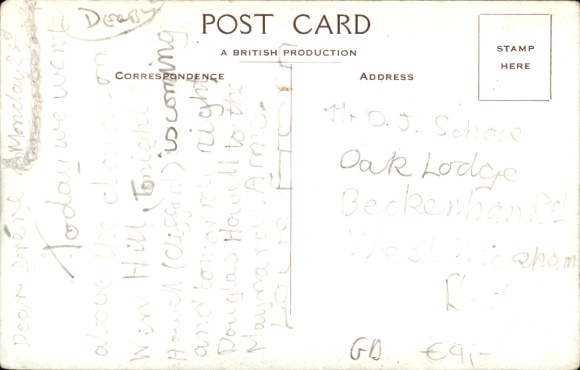 POST CARD
A BRITISH PRODUCTION
CORRESPONDENCE
ADDRESS
STAMP
HERE
Derby
Monday 23rd
Dear
Today we went
above the clouds on
Win Hill (Tonight
Howell (Clifford) is coming
and tomorrow night
Douglas Howell to the
Maynard Arms.
Love from
Mr D. J.
Oak Lodge
Beckenham Rd
West Wickham
Kent
GB €9,-